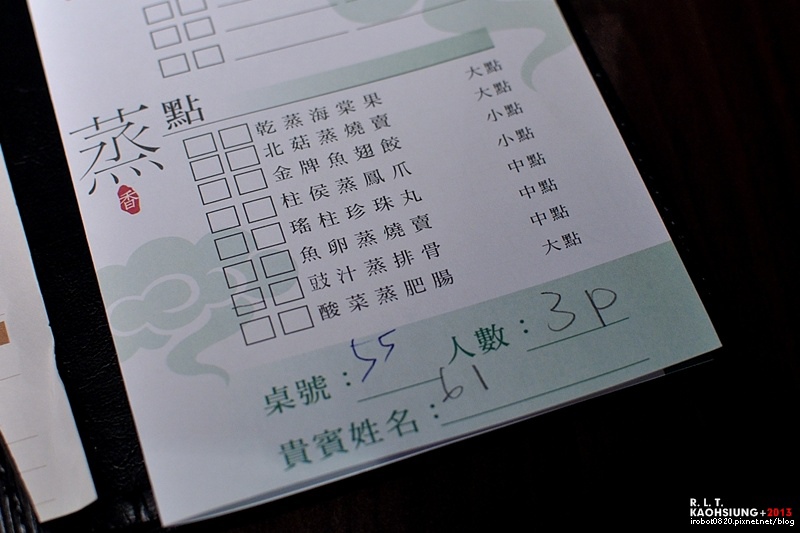 蒸點
香
乾蒸海棠果 大點
北菇蒸燒賣 大點
金牌魚翅餃 小點
柱侯蒸鳳爪 小點
瑤柱珍珠丸 中點
魚卵蒸燒賣 中點
豉汁蒸排骨 中點
酸菜蒸肥腸 大點
桌號：55 人數：3p
貴賓姓名：61
R. L. T.
KAOHSIUNG+2013
irobot0820.pixnet.net/blog